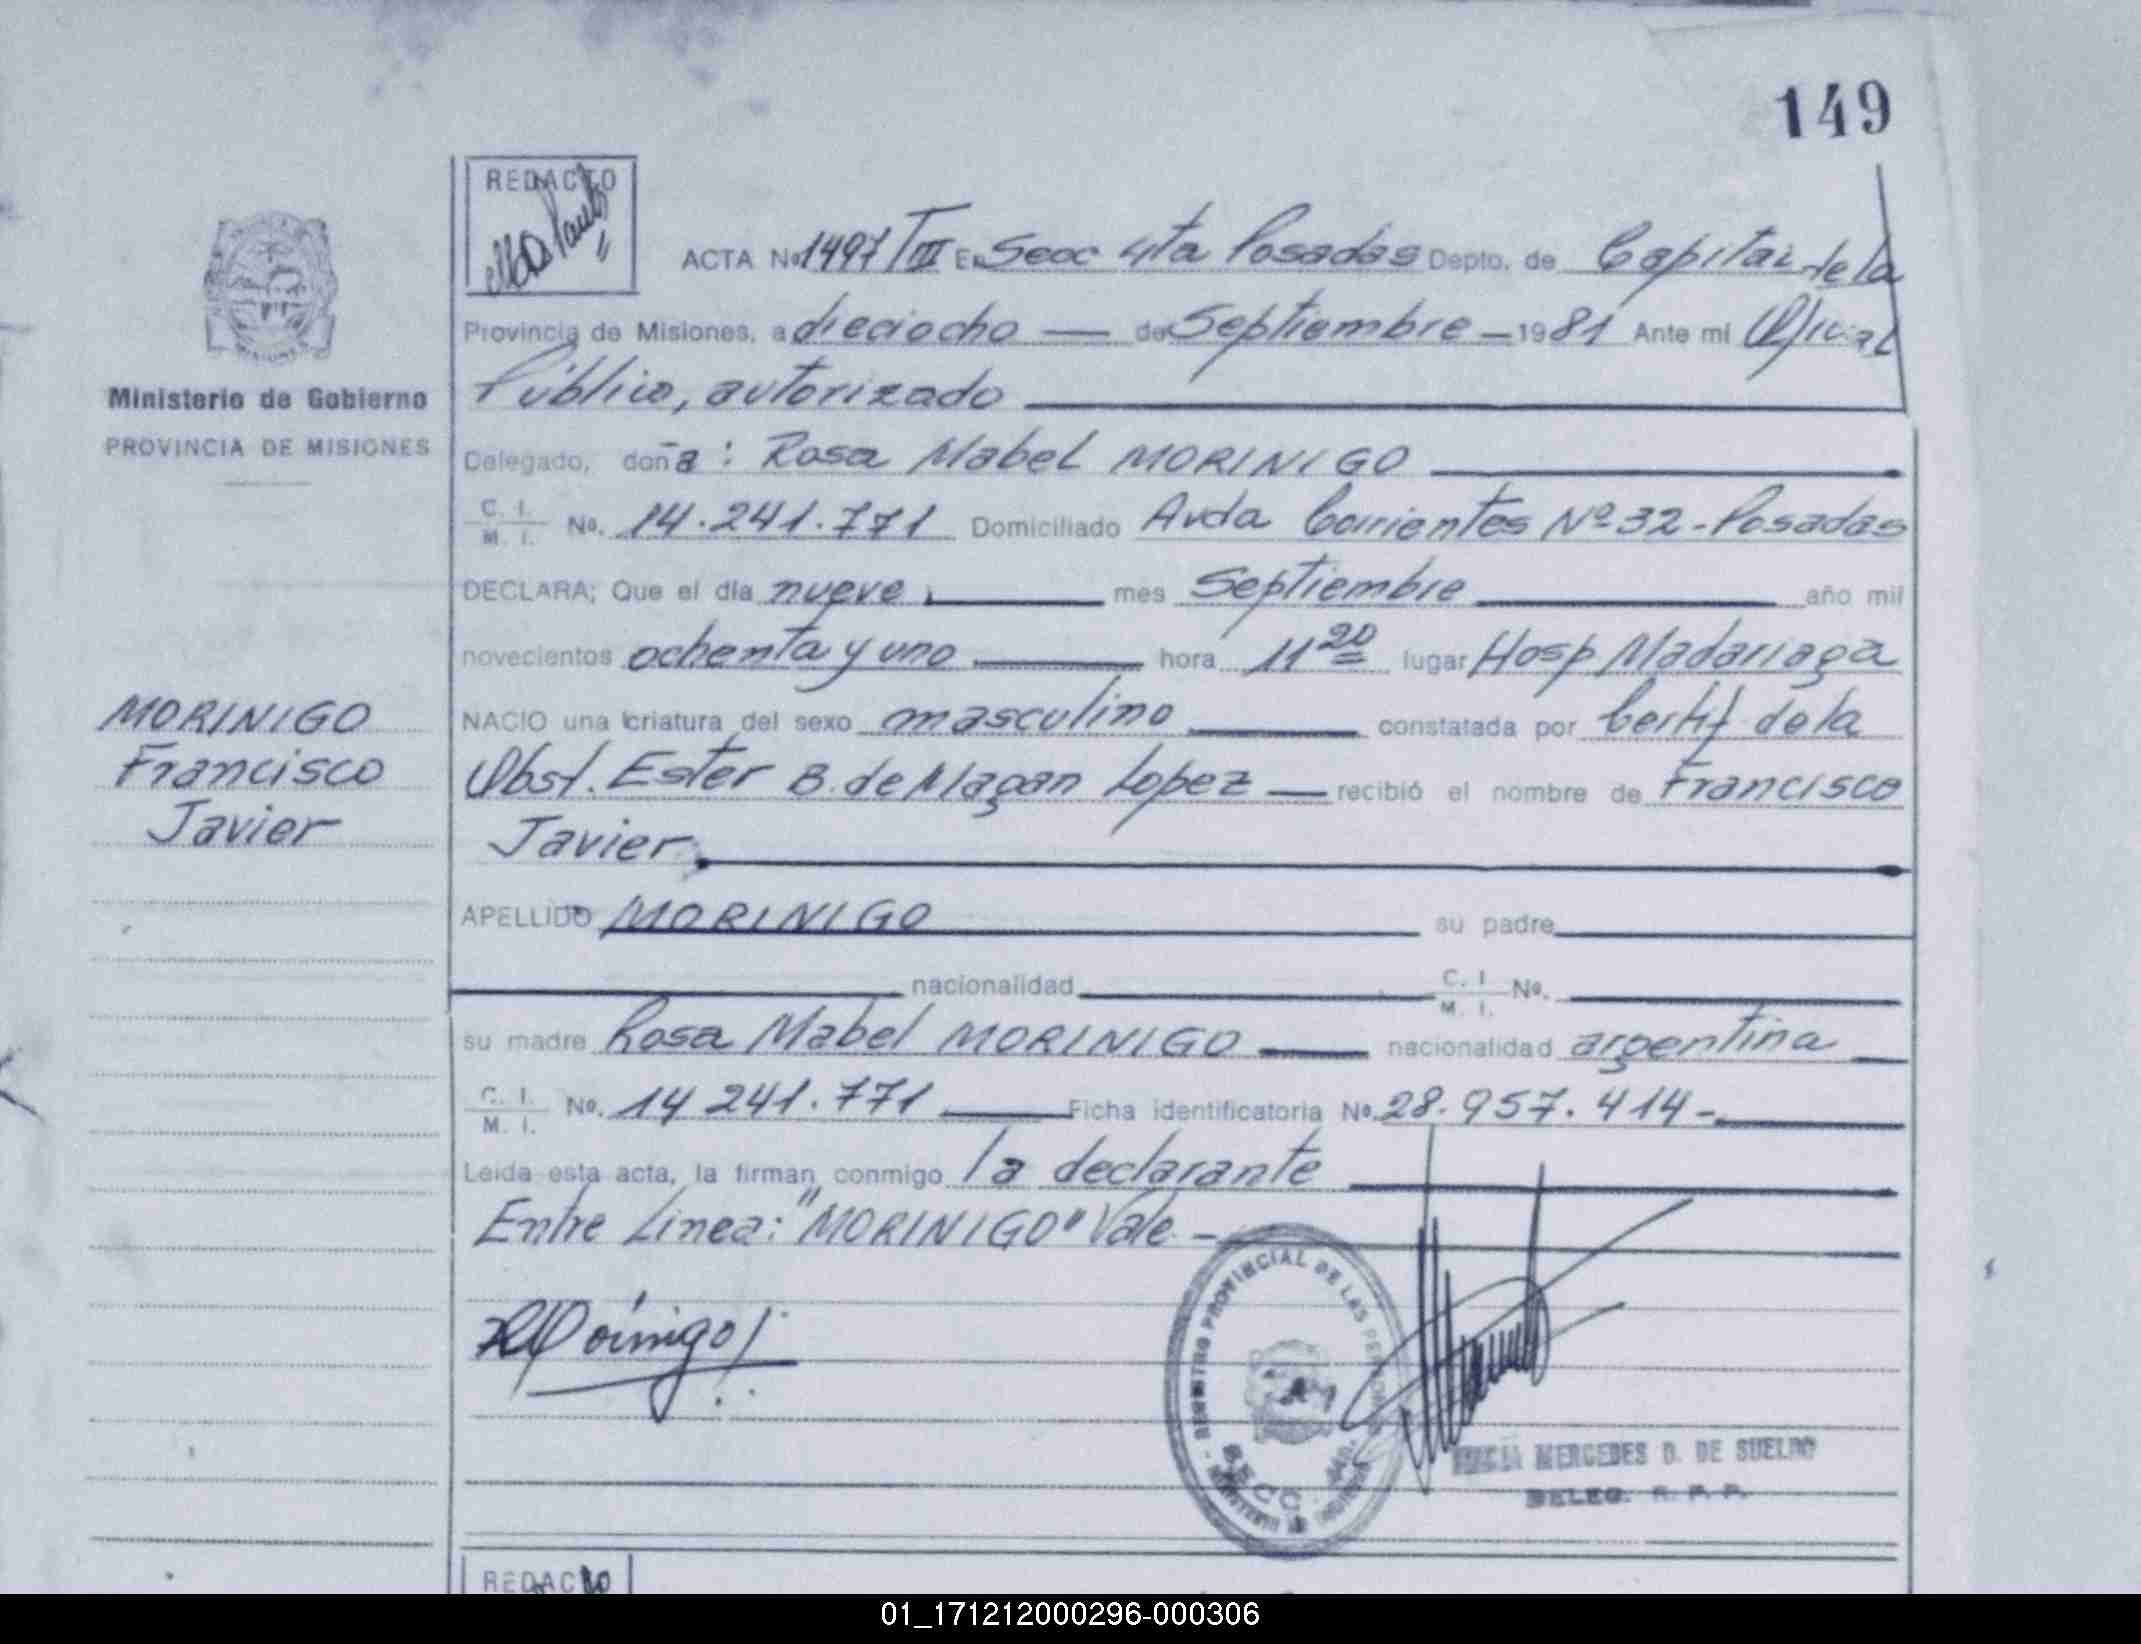 149
REDACTO
ACTA No 1497/III En Secc 4ta Posadas Depto. de Capital de la
Provincia de Misiones, a dieciocho — de Septiembre – 1981 Ante mí Oficial
Público, autorizado
Ministerio de Gobierno
PROVINCIA DE MISIONES
Delegado, doña: Rosa Mabel MORINIGO
C. I. M. I. No. 14.241.771 Domiciliado Avda Corrientes Nº 32 - Posadas
DECLARA; Que el día nueve mes Septiembre año mil
novecientos ochenta y uno hora 11 20 lugar Hosp Madariaga
MORINIGO
Francisco
Javier
NACIO una criatura del sexo masculino constatada por Certif de la
Obst. Ester B. de Magan Lopez — recibió el nombre de Francisco
Javier
APELLIDO MORINIGO su padre
nacionalidad C. I. M. I. No.
su madre Rosa Mabel MORINIGO nacionalidad argentina
C. I. M. I. No. 14 241.771 Ficha identificatoria No. 28.957.414-
Leida esta acta, la firman conmigo la declarante
Entre Línea: "MORINIGO" Vale -
REGISTRO PROVINCIAL DE LAS PERSONAS
SECC
MERCEDES D. DE SUELDO
DELEG. R. P. P.
REDACTO
01_171212000296-000306